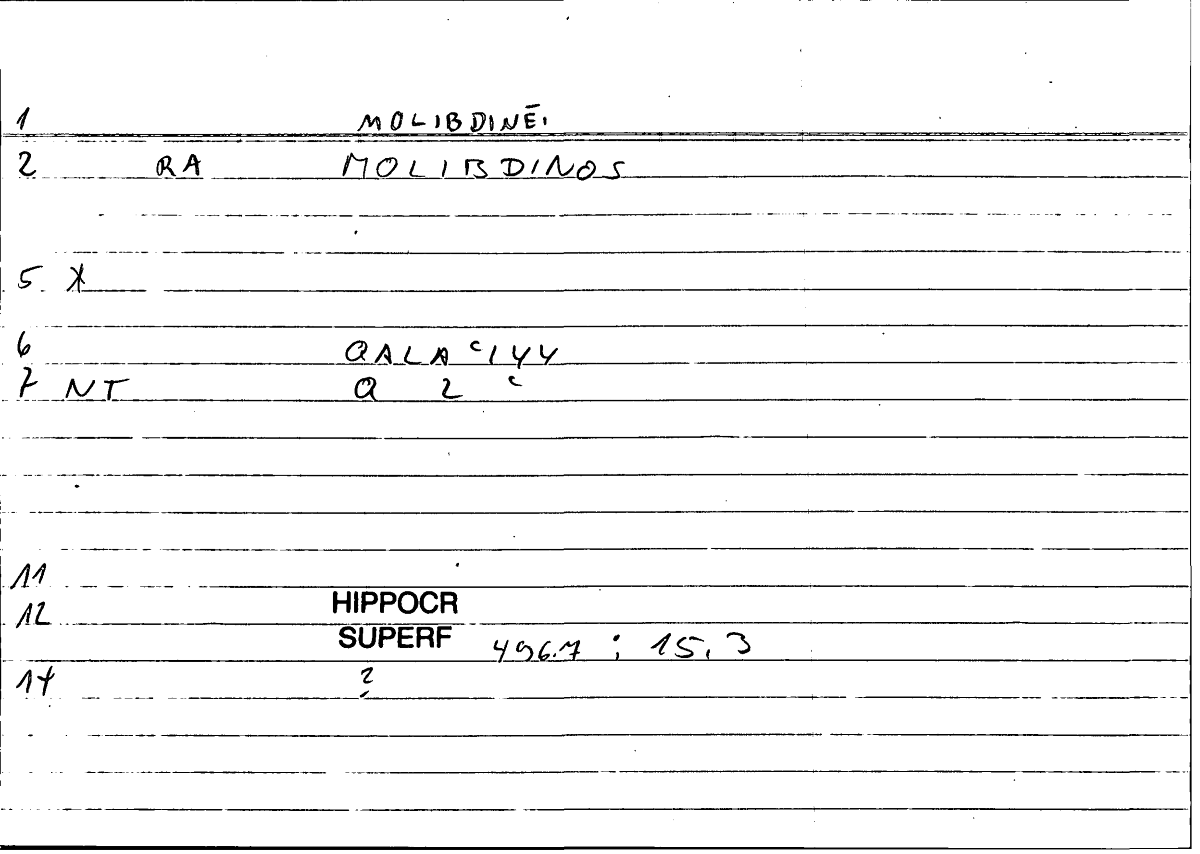 1 MOLIBDINĒ.
2 RA MOLIBDINOS
5 *
6 QALAʿIYY
7 NT Q 2 ʿ
11
12 HIPPOCR
SUPERF 496.7 ; 15,3
14 ?